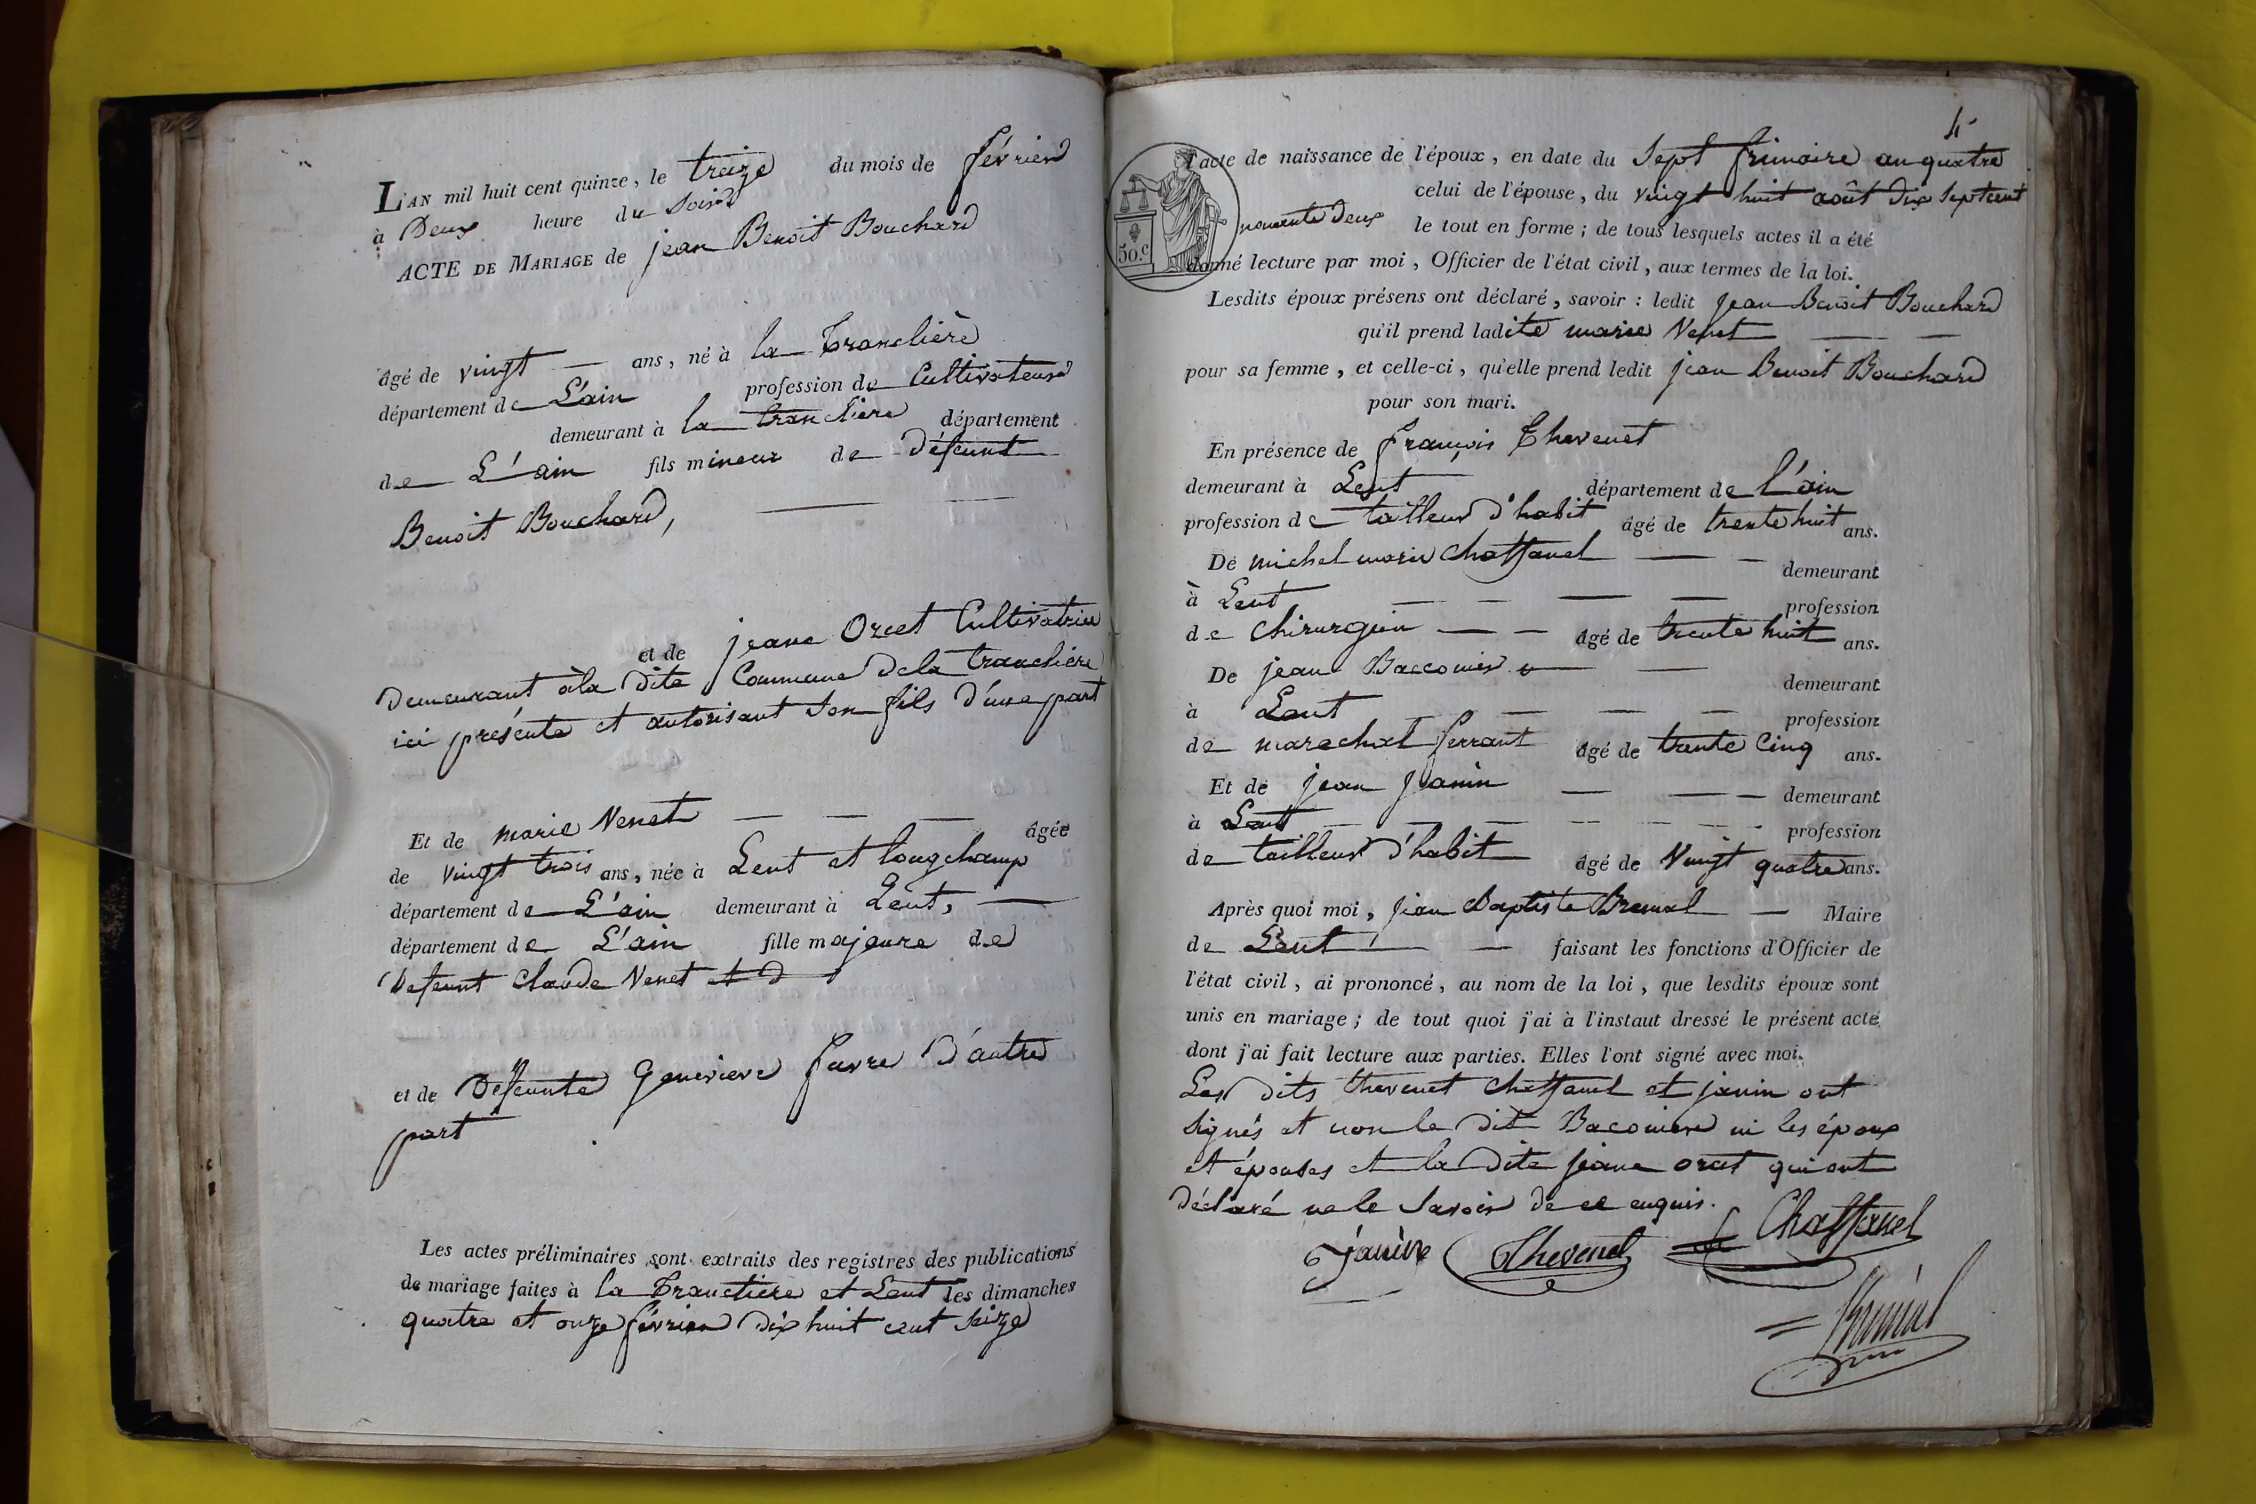 L'AN mil huit cent quinze, le treize du mois de février
à Deux heure du soir
ACTE DE MARIAGE de jean Benoit Bouchard
âgé de vingt — ans, né à la Tranclière
département de L'ain profession de Cultivateur
demeurant à la tranclière département
de L'ain fils mineur de défeunt
Benoit Bouchard, —
et de jeane Orcet Cultivatrice
demeurant à la dite Commune de la tranclière
ici présente et autorisant son fils d'une part
Et de marie Nenet — — — âgée
de vingt trois ans, née à Lent et longchamp
département de L'ain demeurant à Lent, —
département de L'ain fille majeure de
defeunt Claude Nenet et d
et de Défeunte Genevieve favre D'autre
part
Les actes préliminaires sont extraits des registres des publications
de mariage faites à la Tranclière et Lent les dimanches
quatre et onze février dix huit cent seize
4
l'acte de naissance de l'époux, en date du sept frimaire an quatre
celui de l'épouse, du vingt huit août dix septcent
nonante deux le tout en forme ; de tous lesquels actes il a été
donné lecture par moi, Officier de l'état civil, aux termes de la loi.
50.c
Lesdits époux présens ont déclaré, savoir : ledit jean Benoit Bouchard
qu'il prend ladite marie Nenet — —
pour sa femme, et celle-ci, qu'elle prend ledit jean Benoit Bouchard
pour son mari.
En présence de françois Thevenet
demeurant à Lent département de l'ain
profession de tailleur d'habit âgé de trente huit ans.
De michel marie Chaffanel — — demeurant
à Lent — — — — profession
de Chirurgien — — âgé de trente huit ans.
De jean Bacconier — — demeurant
à Lent — — — — profession
de marechal ferrant âgé de trente Cinq ans.
Et de jean janin — — — demeurant
à Lent — — — — profession
de tailleur d'habit âgé de vingt quatre ans.
Après quoi moi, jean Baptiste Bremal — Maire
de Lent — — faisant les fonctions d'Officier de
l'état civil, ai prononcé, au nom de la loi, que lesdits époux sont
unis en mariage ; de tout quoi j'ai à l'instaut dressé le présent acte
dont j'ai fait lecture aux parties. Elles l'ont signé avec moi.
Les dits thevenet Chaffanel et janin ont
signés et non le dit Baconier ni les époux
et épouses et la dite jeane orcet qui ont
déclaré ne le savoir de ce enquis.
janin Thevenet Chaffanel